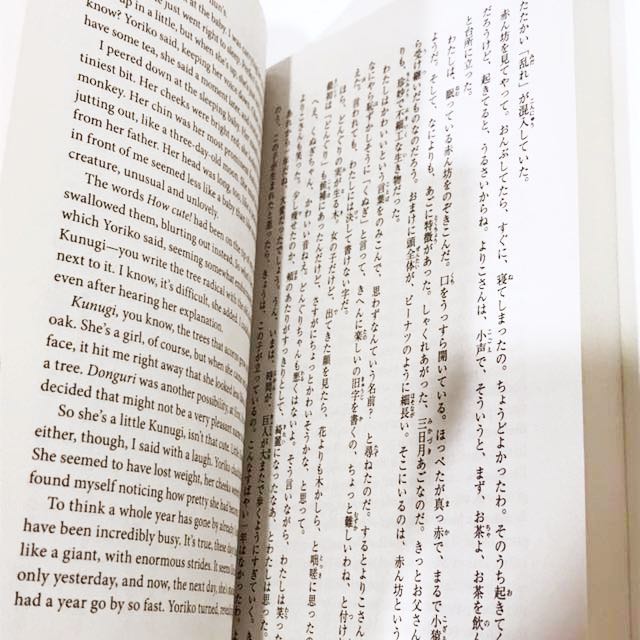 at the baby. I was
he just were right to sleep.
up in a little, but when she's up, she
know? Yoriko said, keeping her
have some tea, she said a moment later, and
I peered down at the sleeping baby. Her
tiniest bit. Her cheeks were bright red,
monkey. Her chin was her most prominent
jutting out, like a three-day-old moon, she
from her father. Her head was long, too, like
in front of me seemed less like a baby than
creature, unusual and unlovely.
The words How cute! had been on the tip
swallowed them, blurting out instead, So what
which Yoriko said, seeming somewhat
Kunugi—you write the tree radical with the
next to it. I know, it's difficult, she added
even after hearing her explanation.
Kunugi, you know, the trees that acorns
oak. She's a girl, of course, but when she
face, it hit me right away that she looked
a tree. Donguri was another possibility at
decided that might not be a very pleasant
So she's a little Kunugi, isn't that cute. Little
either, though, I said with a laugh. Yoriko
She seemed to have lost weight, her cheeks
found myself noticing how pretty she had
To think a whole year has gone by already
have been incredibly busy. It's true, these days
like a giant, with enormous strides. It seems
only yesterday, and now, the next day, she's
had a year go by so fast. Yoriko turned,
たたかい「乱れ」が混入していた。
赤ん坊を見てやって。おんぶしてたら、すぐに、寝てしまったの。ちょうどよかった。そのうち起きてく
だろうけど、起きてると、うるさいからね。よりこさんは、小声で、そういうと、まず、お茶よ、お茶を飲ん
と台所に立った。
わたしは、眠っている赤ん坊をのぞきこんだ。口をうっすら開いている。ほっぺたが真っ赤で、まるで小猿
ようだ。そして、なによりも、あごに特徴があった。しゃくれあがった、三日月あごなのだ。きっとお父さん
ら受け継いだものなのだろう。おまけに頭全体が、ピーナツのように細長い。そこにいるのは、赤ん坊という
りも、珍妙で不細工な生き物だった。
わたしはかわいいという言葉をのみこんで、思わずなんていう名前？ と尋ねたのだ。するとよりこさん
なにやら恥ずかしそうに「くぬぎ」と言って、きへんに楽しいの旧字を書くの、ちょっと難しいわね、と付け
えた。言われても、わたしには決して書けない字だ。
ほら、どんぐりの実が生る木。女の子だけど、出てきた顔を見たら、花よりも木かしら、と咄嗟に思った
最初は「どんぐり」も候補にあったんだけど、さすがにちょっとかわいそうかな、と思って。
へえ、くぬぎちゃん、かわいい音ねえ。どんぐりちゃんも悪くはないよ、そう言いながら、わたしは笑った
よりこさんも笑った。少し痩せたのか、頬のあたりがすっきりとして、綺麗になったなあ、とわたしは思った